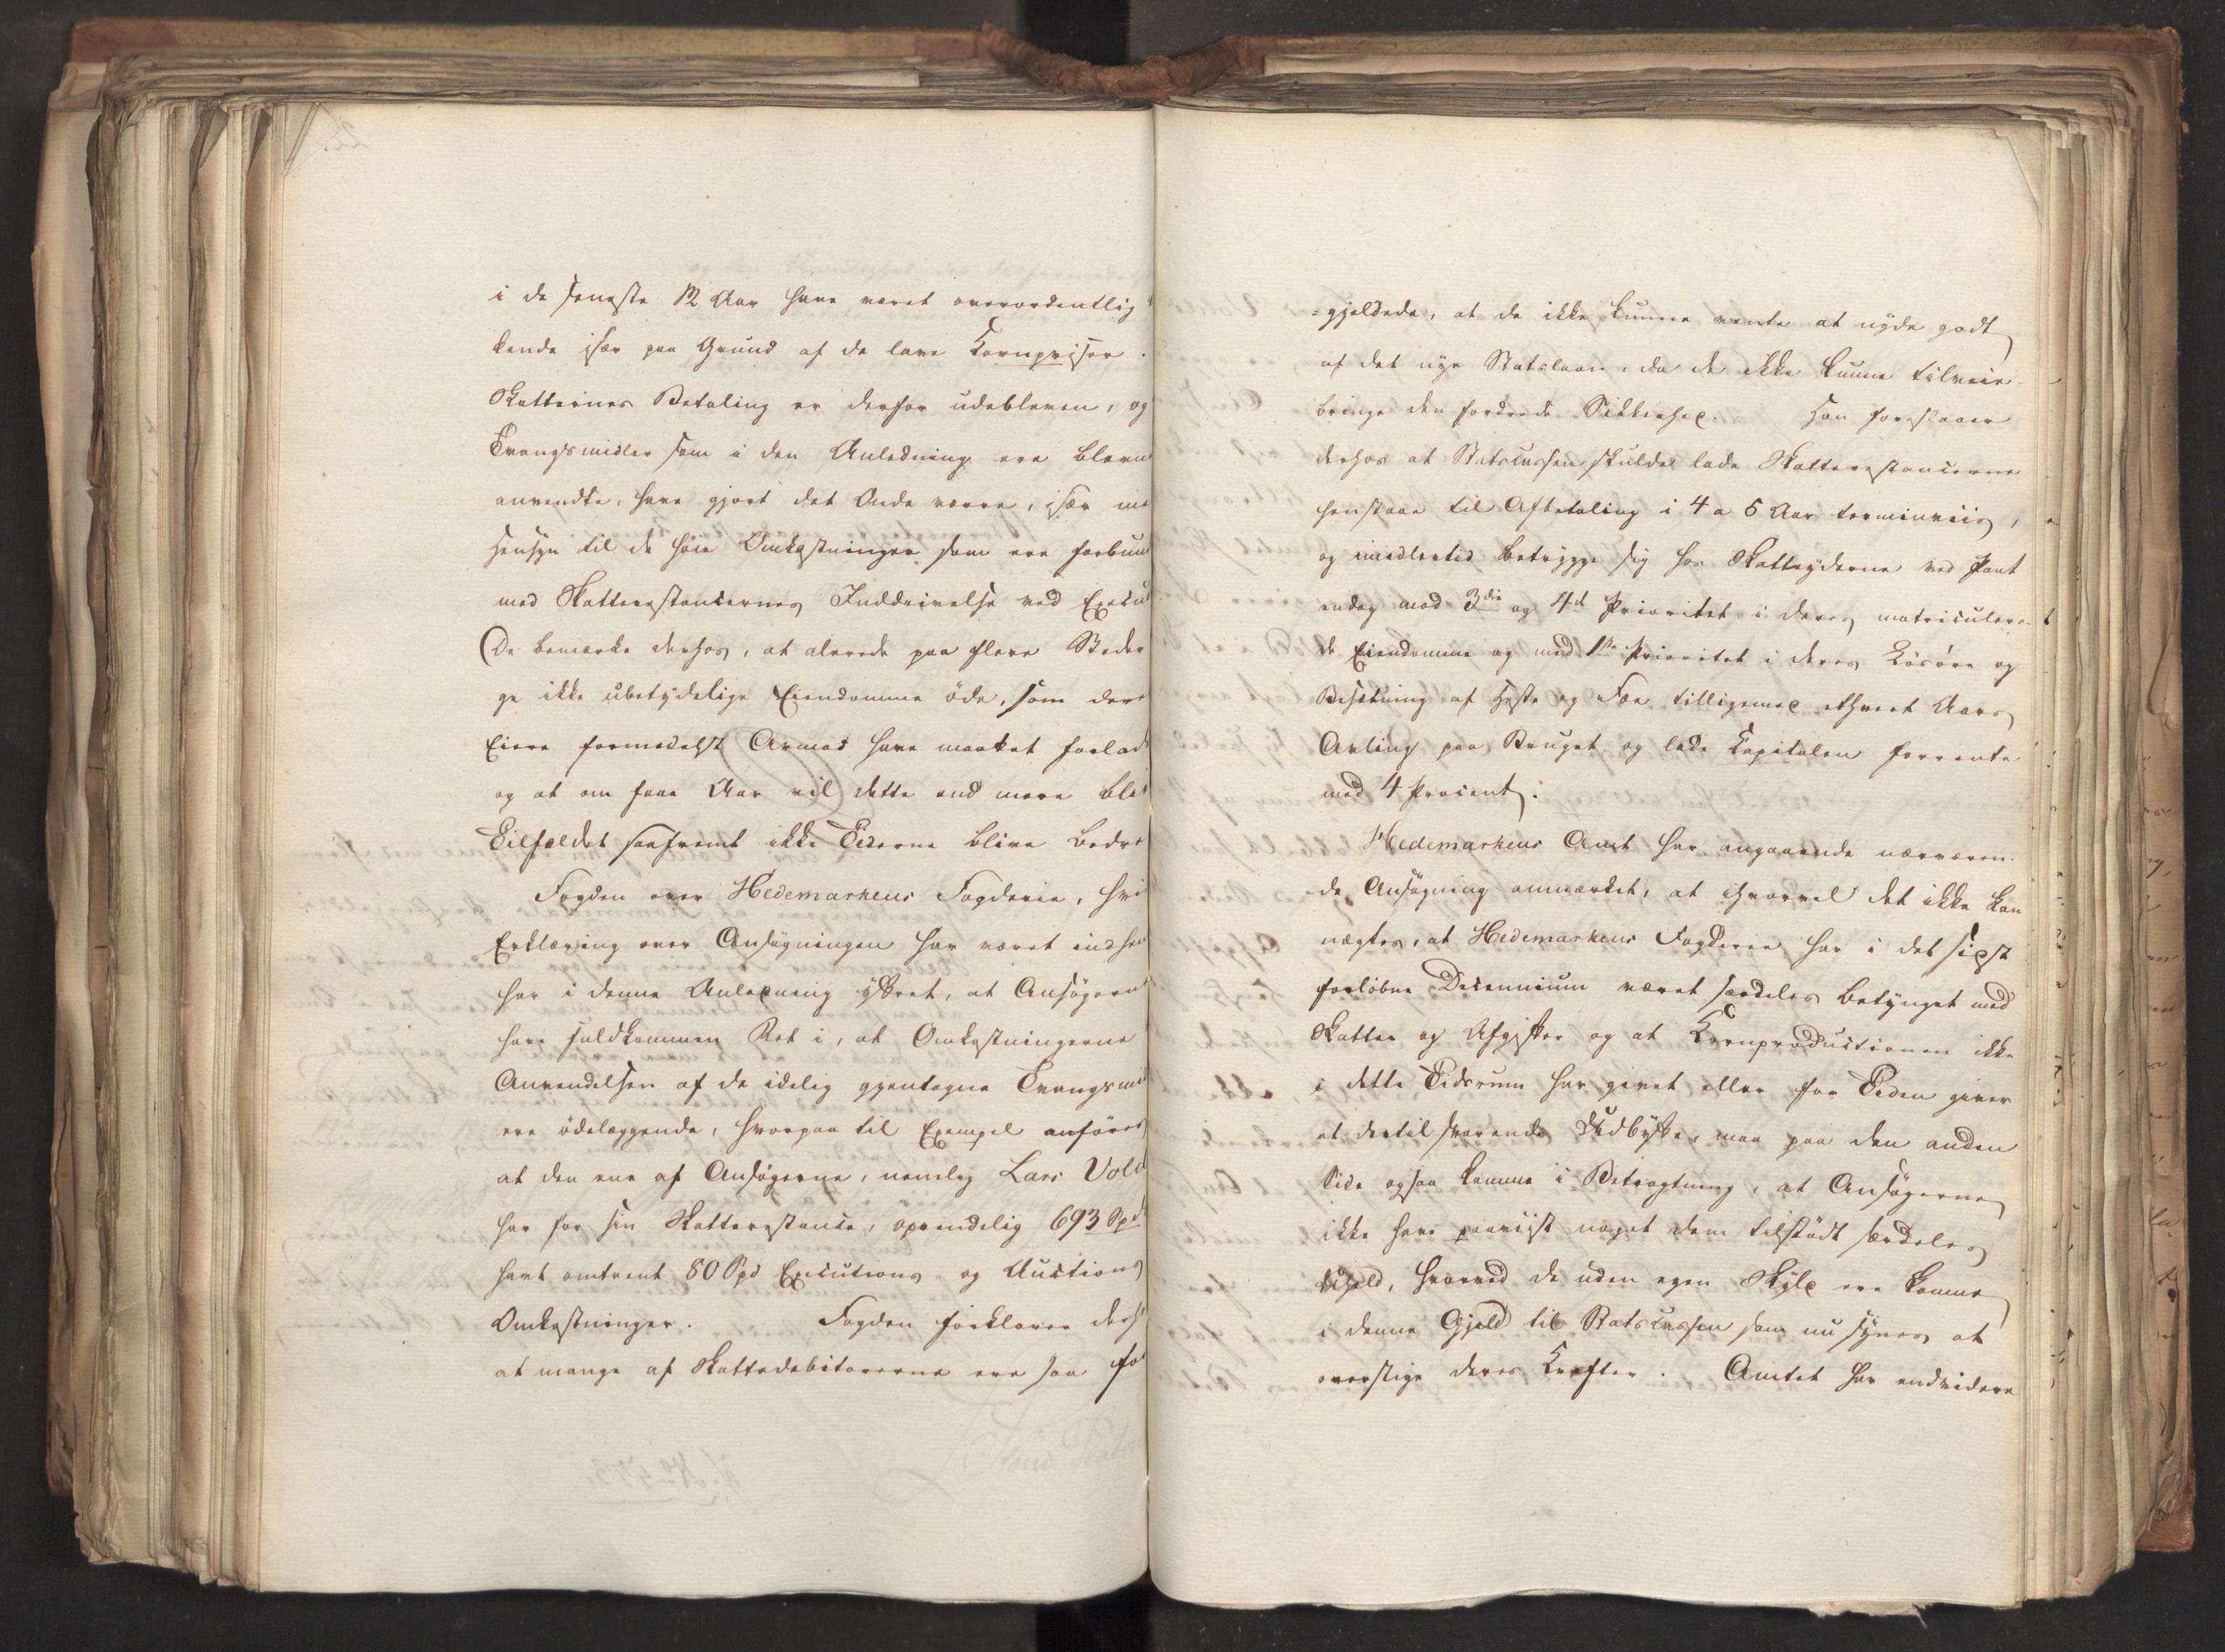 i de seneste 12 Aar have været overordentlig
kende især paa Grund af de lave Kornpriser.
Skatternes Betaling er derfor udebleven, og
Tvangsmidler som i den Anledning ere bleven
anvendte, have gjort det Onde værre, især me
Hensyn til de høie Omkostninger som ere forbun
med Skatterestancernes Inddrivelse ved Execu
De bemærke derhos, at alerede paa flere Steder
ge ikke ubetydelige Eiendomme øde, som der
Eiere formedelst Armod have maattet forlad
og at om faae Aar vil dette end mere bli
Tilfældet saafremt ikke Tiderne blive bedre
Fogden over Hedemarkens Fogderie, hvi
Erklæring over Ansøgningen har været indhen
har i denne Anledning yttret, at Ansøgern
have fuldkommen Ret i, at Omkostningerne
Anvendelsen af de idelig gjentagne Tvangsmi
ere ødelæggende, hvorpaa til Exempel anføres
at den ene af Ansøgerne, nemlig Lars Vold
har for sin Skatterestance, oprindelig 693 Spd
havt omtrent 80 Spd Executions og Auctions
Omkostninger. Fogden forklarer derh
at mange af Skattedebitorerne ere saa for
=gjeldede, at de ikke kunne vente at nyde godt
af det nye Statslaan, da de ikke kunne tilveie-
bringe den fordrede Sikkerhed. Han foreslaaer
derhos at Statscassen skulde lade Skatterestancerne
henstaae til Afbetaling i 4 a 5 Aar terminviis,
og imidlertid betrygge sig hos Skatteyderne ved Pant
endog mod 3die og 4de Prioritet i deres matriculere-
de Eiendomme og med 1ste Prioritet i deres Løsøre og
Besætning af Heste og Fæe tilligemed ethvert Aars
Avling paa Bruget og lade Capitalen forrente
med 4 Procent.
Hedemarkens Amt har angaaende nærværen-
=de Ansøgning anmærket, at ihvorvel det ikke kan
nægtes, at Hedemarkens Fogderie har i det sidst
forløbne Decennium været særdeles betynget med
Skatter og Afgifter og at Kornproductionen ikke
i dette Tidsrum har givet eller for Tiden giver
et dertil svarende Udbytte, maa paa den anden
Side ogsaa komme i Betragtning, at Ansøgerne
ikke have paaviist noget dem tilstødt særdeles
Uheld, hvorved de uden egen Skyld ere komne
i denne Gjeld til Statscassen som nu synes at
overstige deres Kræfter. Amtet har endvidere